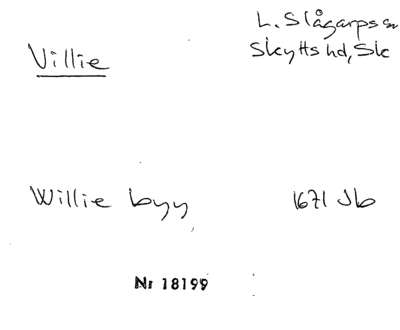 L. Slågarps sn
Villie
Skytts hd, Sk
Willie byy
1671 Jb
Nr 18199